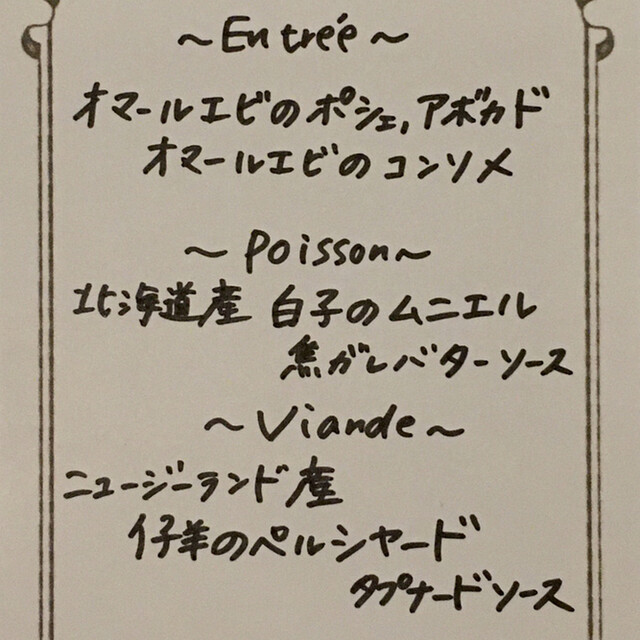 ～Entrée～
オマールエビのポシェ,アボカド
オマールエビのコンソメ
～Poisson～
北海道産 白子のムニエル
焦がしバターソース
～Viande～
ニュージーランド産
仔羊のペルシヤード
タプナードソース